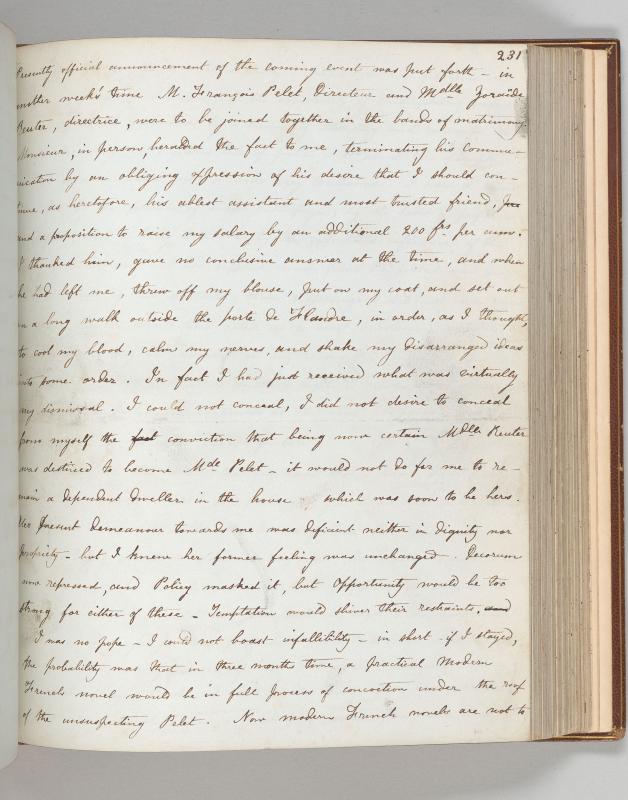 231
Presently official announcement of the coming event was put forth - in
another week's time M. François Pelet, Directeur and Mdlle Zoraïde
Reuter, directrice, were to be joined together in the bands of matrimony
Monsieur, in person, heralded the fact to me, terminating his commu-
nication by an obliging expression of his desire that I should con-
tinue, as heretofore, his ablest assistant and most trusted friend,
and a proposition to raise my salary by an additional 200 frs per ann.
I thanked him, gave no conclusive answer at the time, and when
he had left me, threw off my blouse, put on my coat, and set out
on a long walk outside the porte de Flandre, in order, as I thought,
to cool my blood, calm my nerves, and shake my disarranged ideas
into some order. In fact I had just received what was virtually
my dismissal. I could not conceal, I did not desire to conceal
from myself the fact conviction that being now certain Mdlle Reuter
was destined to become Mde Pelet - it would not do for me to re-
main a dependent dweller in the house which was soon to be hers.
Her present demeanour towards me was deficient neither in dignity nor
propriety - but I knew her former feeling was unchanged. Decorum
now repressed, and Policy masked it, but Opportunity would be too
strong for either of these - Temptation would shiver their restraints, and
I was no pope - I could not boast infallibility - in short - if I stayed,
the probability was that in three month time, a practical Modern
French novel would be in full process of concoction under the roof
of the unsuspecting Pelet. Now modern French novels are not to